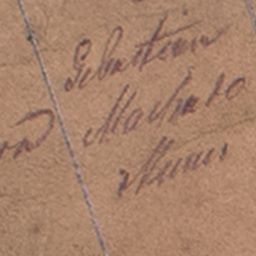 Sebastian
Machado
Nunes